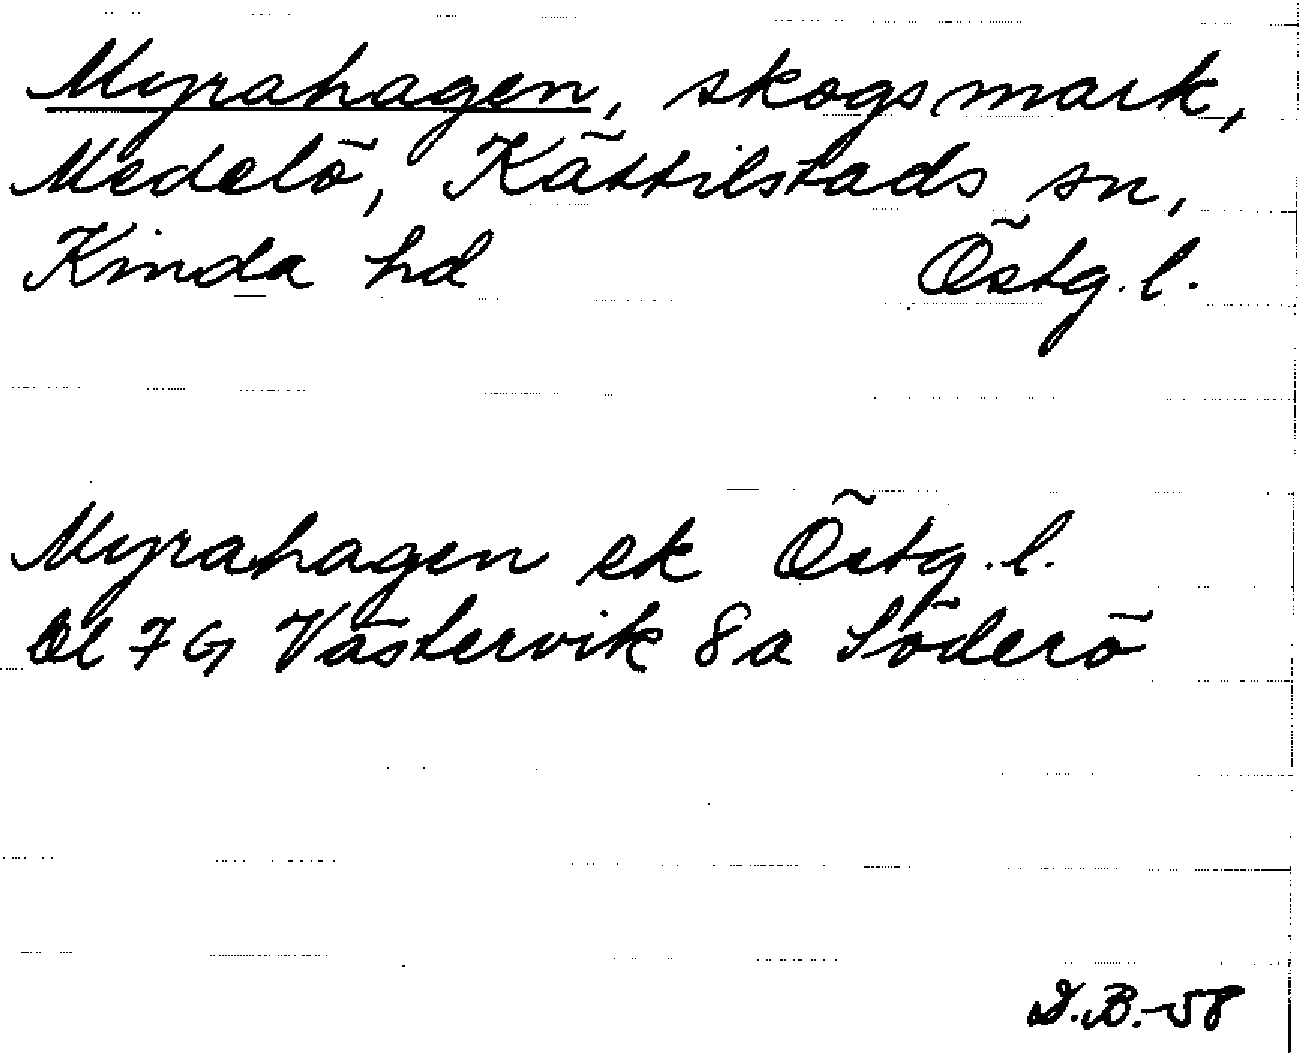 Myrahagen, skogsmark,
Medelö, Kättilstads sn,
Kinda hd Östg.l.
Myrahagen ek Östg.l.
Bl 7G Västervik 8a Söderö
D.B.-58